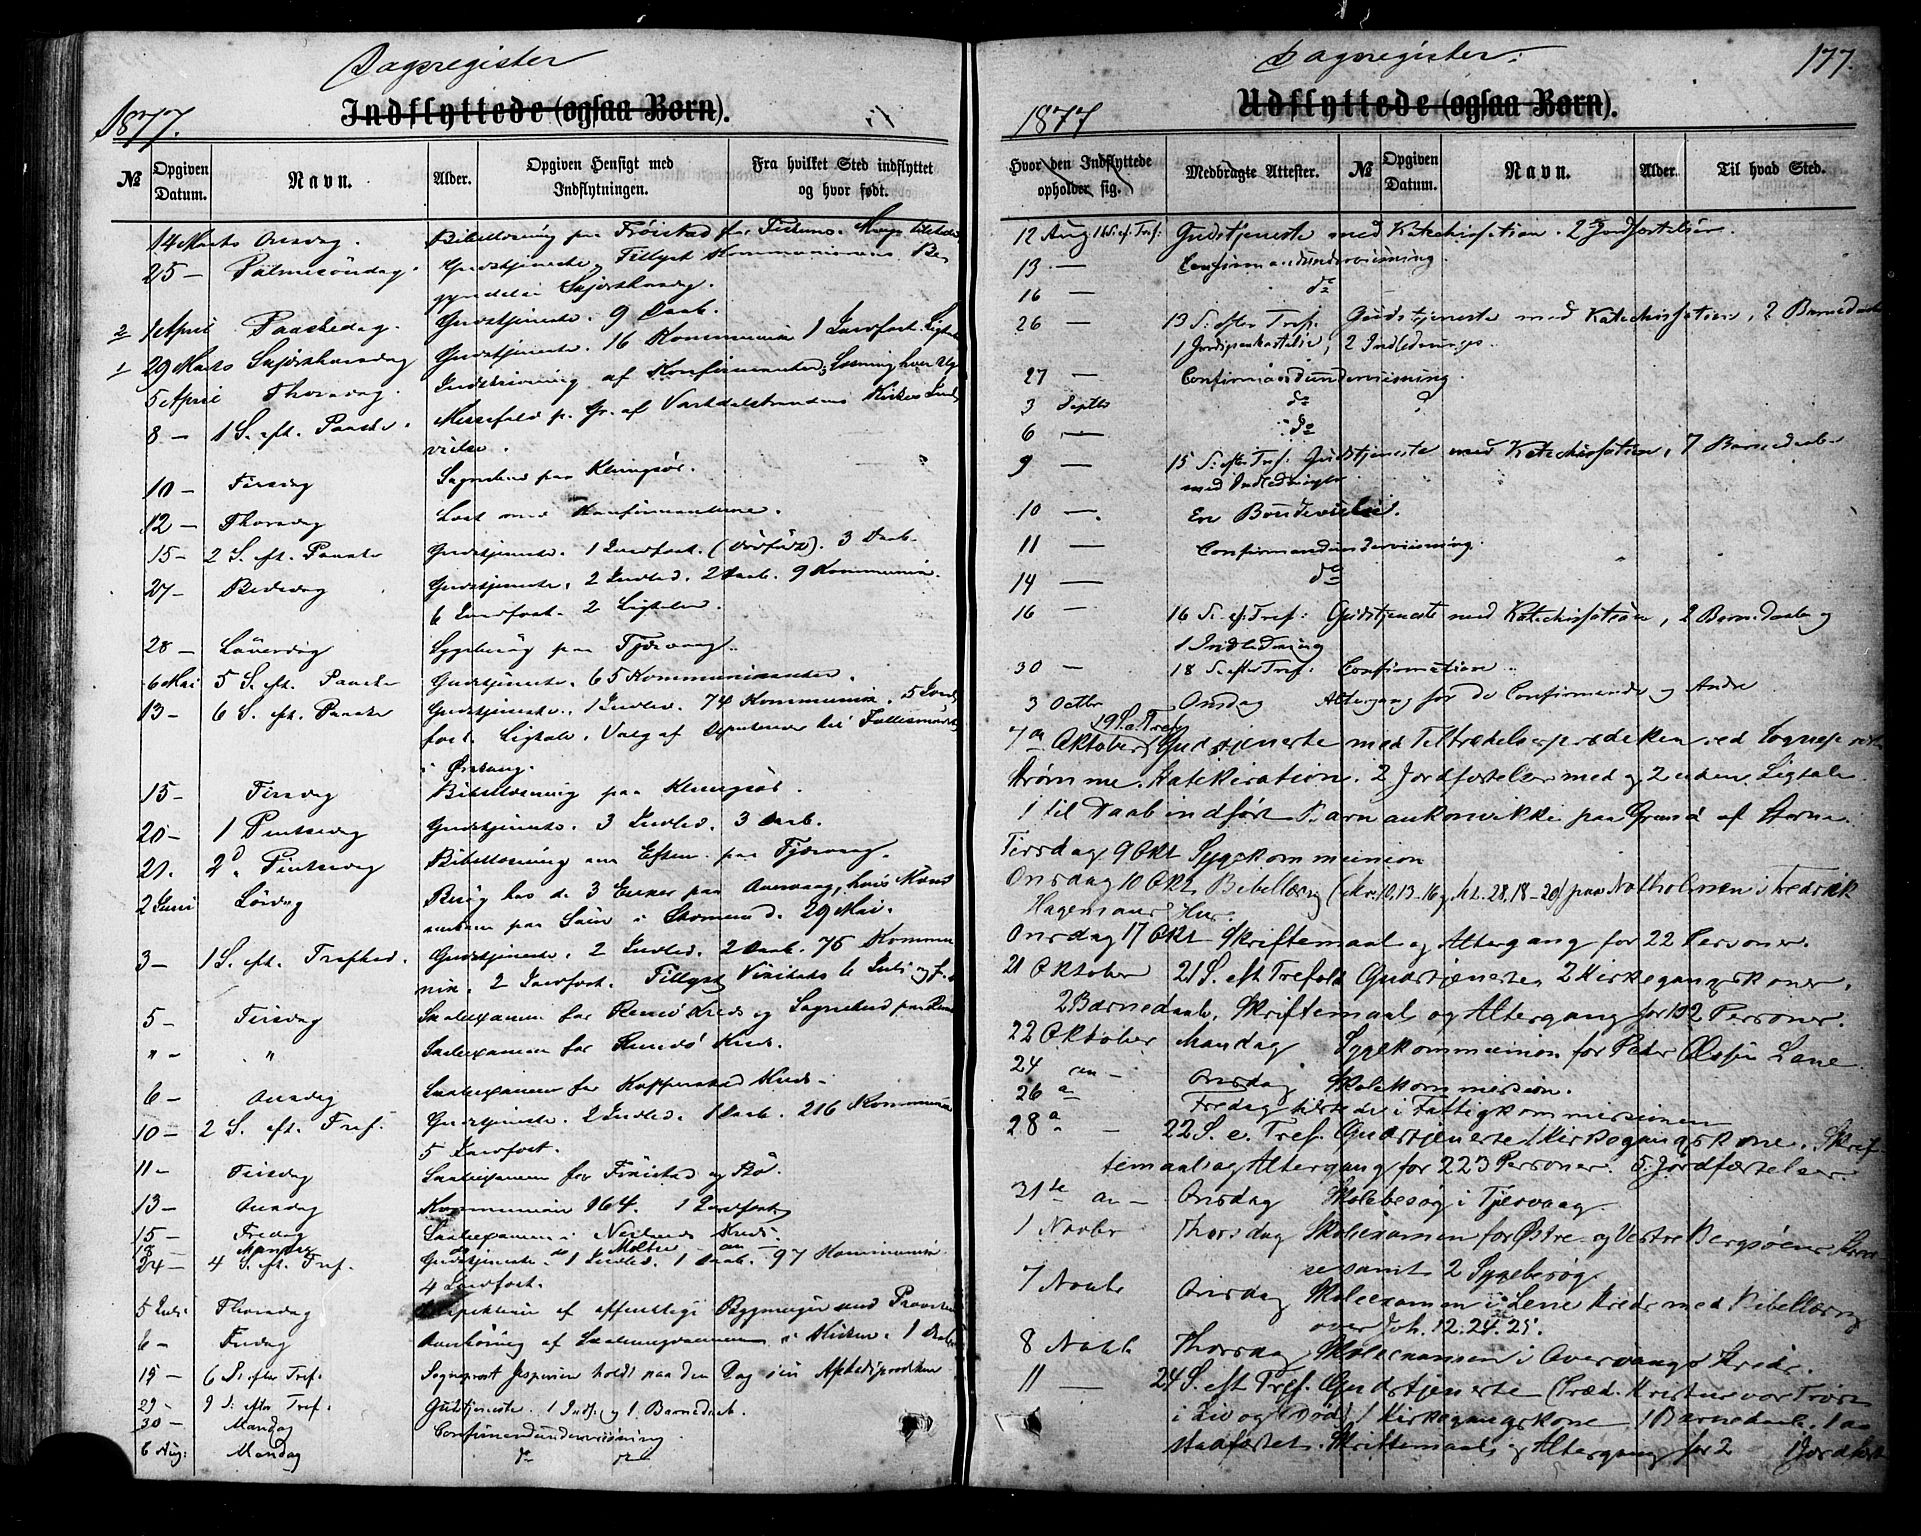 Dagsregister
1877.
Indflyttede (ogsaa Børn).
№
Opgiven Datum.
Navn.
Alder.
Opgiven Hensigt med Indflytningen.
Fra hvilket Sted indflyttet og hvor født.
14 Marts Onsdag. Bibellæsning paa Frøistad
25 — Palmesøndag. Gudstjeneste. Tillyst Kommunionens Be-
gyndelse Skjærthorsdag.
2 1 April Paaskedag. Gudstjeneste. 9 Daab.
1 29 Marts Skjærthorsdag Gudstjeneste. 16 Kommunion 1 Jordfæst. Ligtale
5 April Thorsdag. Indskrivning af Konfirmanter
8 — 1 S. eft. Paaske. Messefald p. Gr. af Vartdalstrandens Kirkes Ind-
vielse.
10 — Tirsdag Sognebud paa Klungsør.
12 — Thorsdag Læst med Konfirmanterne.
15 — 2 S. eft. Paaske Gudstjeneste. 1 Jordfæst. (dødfødt). 3 Daab.
27 — Bededag Gudstjeneste. 2 Indled. 2 Daab. 9 Kommunion.
6 Jordfæst. 2 Ligtaler.
28 — Løverdag Sygebesøg paa Tjervaag.
6 Mai 5 S. eft. Paaske Gudstjeneste. 65 Kommunikanter.
13 — 6 S. eft. Paaske Gudstjeneste. 1 Indled. 74 Kommunion. 5 Jord-
fæst. Ligtale. Valg af Deputerede til Fællesmøde
i Ørstavig.
15 — Tirsdag Bibellæsning paa Klungsør.
20 — 1 Pintsedag Gudstjeneste. 3 Indled. 3 Daab.
21. 2d. Pintsedag Bibellæsning om Eftm. paa Tjervaag.
2 Juni Lørdag Besøg hos de 3 Enker paa Aurvaag, hvis Mænd
omkom paa Søen i Stormen d. 29 Mai.
3 — 1 S. eft. Trefhed. Gudstjeneste. 2 Indled. 2 Daab. 76 Kommu-
nion. 2 Jordfæst. Tillyst Visitats
5 — Tirsdag Skoleexamen for Remø Kreds og Sognebud paa
" — " Skoleexamen for Runde Kreds.
6 — Onsdag Skoleexamen for Koppenstad Kreds.
10 — 2 S. eft. Tref. Gudstjeneste. 2 Indled. 1 Daab. 216 Kommunion
5 Jordfæst.
11 — Tirsdag Skoleexamen for Frøistad og Bø.
13 — Onsdag Kommunion 164. 1 Jordfæst.
15 — Fredag Skoleexamen i Nerlands Kreds.
18 Mandag do do Moltu an —
24 — 4 S. eft. Tref. Gudstjeneste. 1 Indled. 1 Daab. 97 Kommunion.
4 Jordfæst.
5 Juli Thorsdag Inspektion af offentlige Bygninger med Provsten
6 — Fredag i Kirken. 1 Daab
15 — 6 S. efter Tref. Sogneprest Jespersen holdt paa den Dag sin Afskedsprædiken
29 — 9 S. efter Tref. Gudstjeneste. 1 Indl. og 1 Barnedaab.
30 — Mandag Confirmandundervisning.
6 Aug. Mandag do do
Dagsregister.
177.
1877
Udflyttede (ogsaa Børn).
Hvor den Indflyttede opholder sig.
Medbragte Attester.
№
Opgiven Datum.
Navn.
Alder.
Til hvad Sted.
12 Aug 11 S. ef. Tref. Gudstjeneste med Katechisation. 2 Jordfæstelser.
13 — Confirmandundervisning.
16 — do
26 — 13 S. efter Tref. Gudstjeneste med Katechisation, 2 Barnedaab
1 Jordpaakastelse, 2 Indledninger.
27 — Confirmandundervisning.
3 Septbr do
6 — do
9 — 15 S. efter Tref. Gudstjeneste med Katechisation, 7 Barnedaab
med Indledninger
10 — En Brudevielse.
11 — Confirmandundervisning.
14 — do
16 — 16 S. ef. Tref: Gudstjeneste med Katechisation, 2 Barnedaab og
1 Indledning
30 — 18 S. efter Tref. Confirmation.
3 Octbr Onsdag Altergang for de Confirmerede og Andre
7de Oktober 19 S. e. Tref. Gudstjeneste med Tiltrædelsesprædiken ved Sognepr.
Strømme. Katekisation. 2 Jordfæstelser med og 2 uden Ligtale.
1 til Daab indført Barn ankom ikke paa Grund af Storm.
Tirsdag 9 Okt Sygekommunion
Onsdag 10 Okt Bibellæsng (Mr. 10,13-16 og Mt. 28,18-20) paa Notholmen i Fredrik
Hagemans Hus.
Onsdag 17 Okt Skriftemaal og Altergang for 22 Personer.
21 Oktober 21 S. eft Trefold Gudstjeneste 2 Kirkegangskoner,
2 Barnedaab, Skriftemaal og Altergang for 192 Personer.
22 Oktober Mandag Sygekommunion for Peder Olsen Lane.
24 an — Onsdag Skolekommission.
26 a Fredag tilstede i Fattigkommissionen
28 a — 22 S. e. Tref. Gudstjeneste 1 Kirkegangskone. Skrif-
temaal og Altergang for 223 Personer. 5 Jordfæstelser.
31te an — Onsdag Skolebesøg i Tjervaag.
1 Novbr Thorsdag Skolexamen for Østre og Vestre Bergsøens Kred-
se samt 2 Sygebesøg.
7 Novbr Onsdag Skolexamen i Leine Kreds med Bibellæsng
over Joh. 12. 24. 25.
8 Novb Thorsdag Skolexamen i Aurvaags Kreds.
11 — 24 S. eft Tref. Gudstjeneste (Præd. Kristus vor Trøst
i Liv og Død) 1 Kirkegangskone, 1 Barnedaab, 1
stadfæstet. Skriftemaal og Altergang for 2 1 Jordfæst